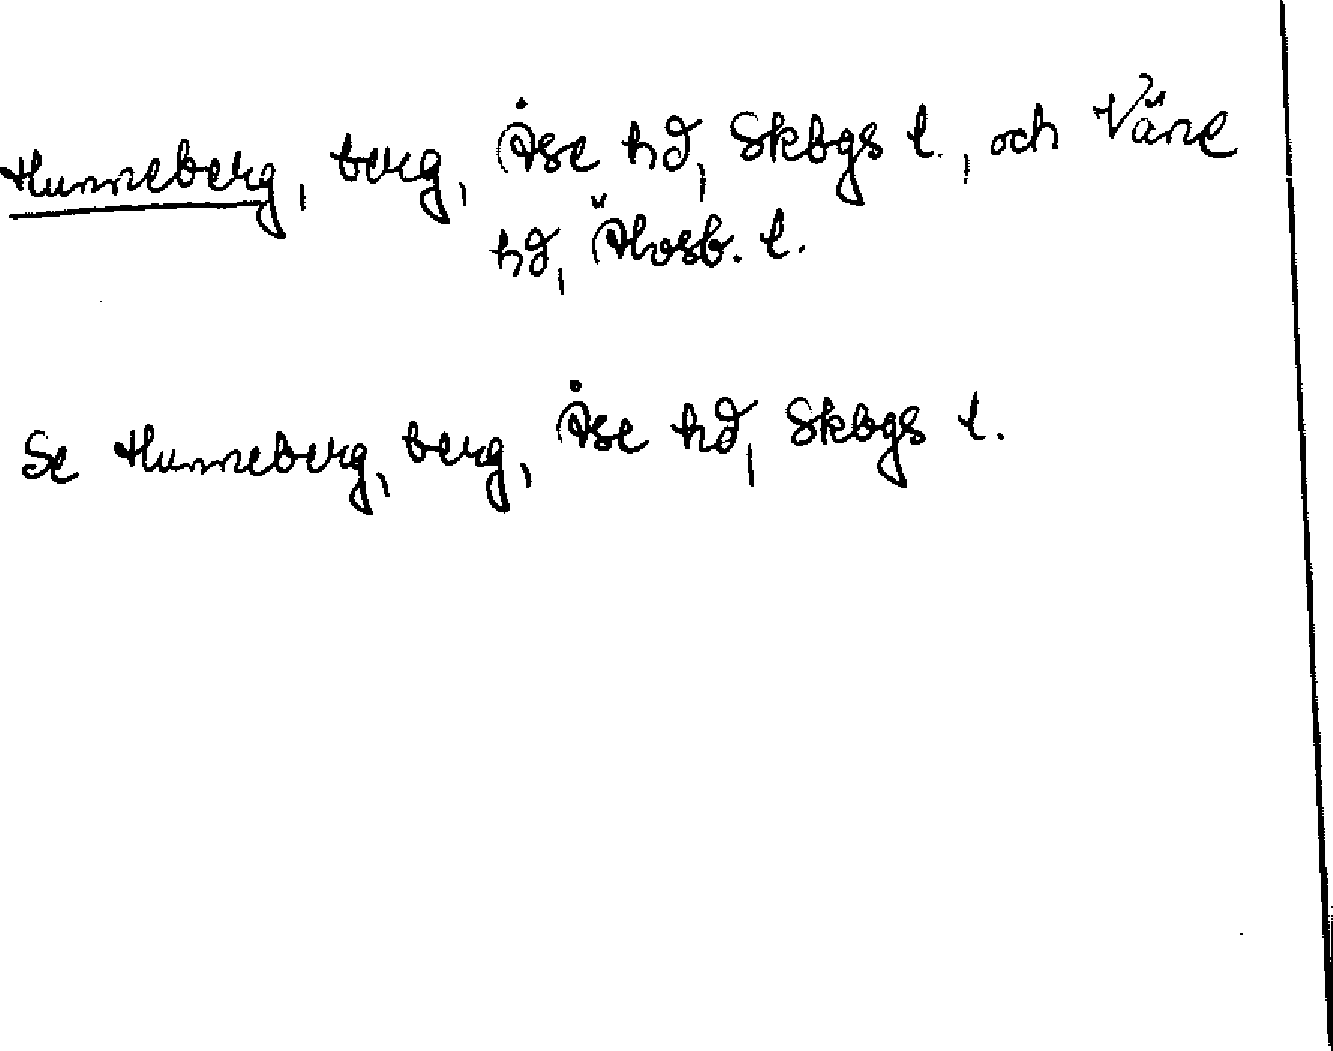 Hunneberg, berg, Åse hd, Skbgs l., och Väne
hd, Älvsb. l.
Se Hunneberg, berg, Åse hd, Skbgs l.